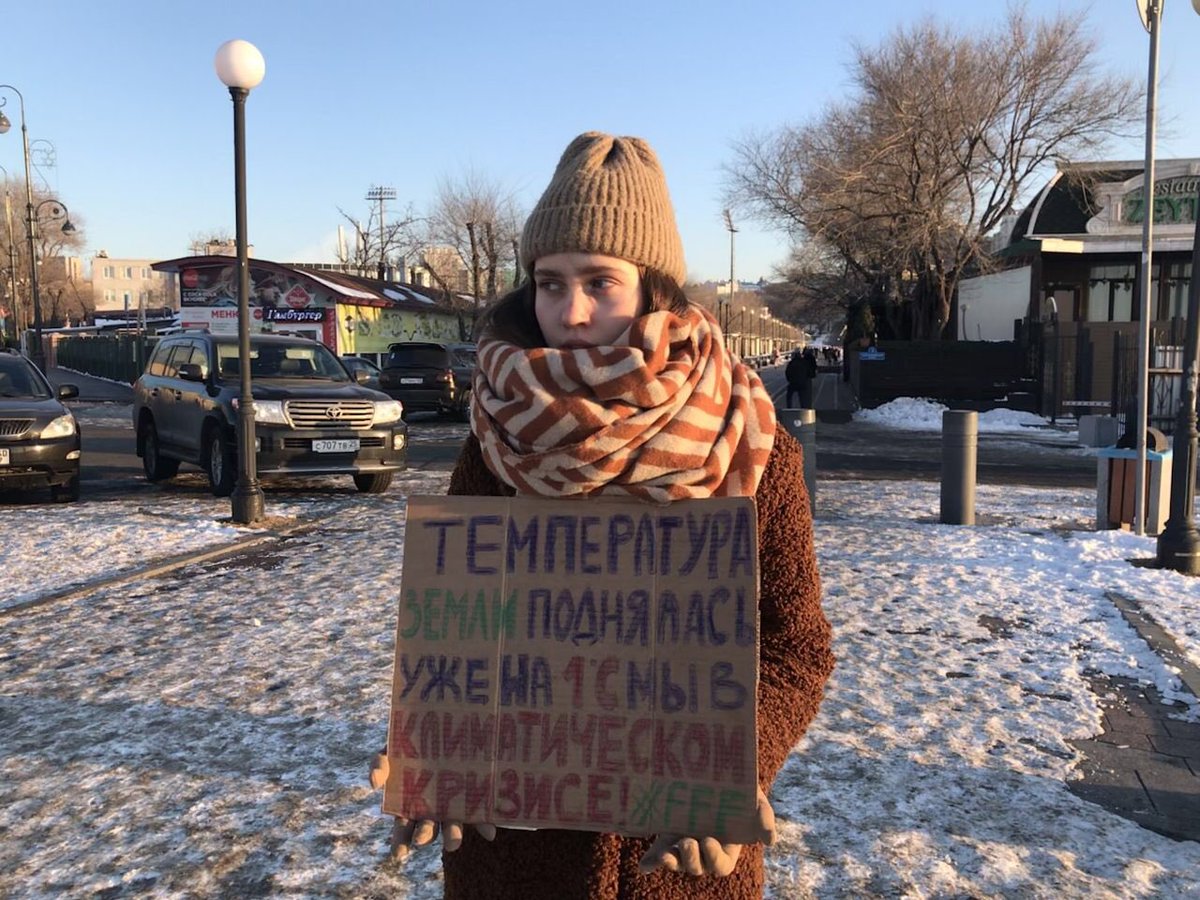 ТЕМПЕРАТУРА
ЗЕМЛИ ПОДНЯЛАСЬ
УЖЕ НА 1°C МЫ В
КЛИМАТИЧЕСКОМ
КРИЗИСЕ! #FFF
МЕНЮ
Гамбургер
C 707 TB